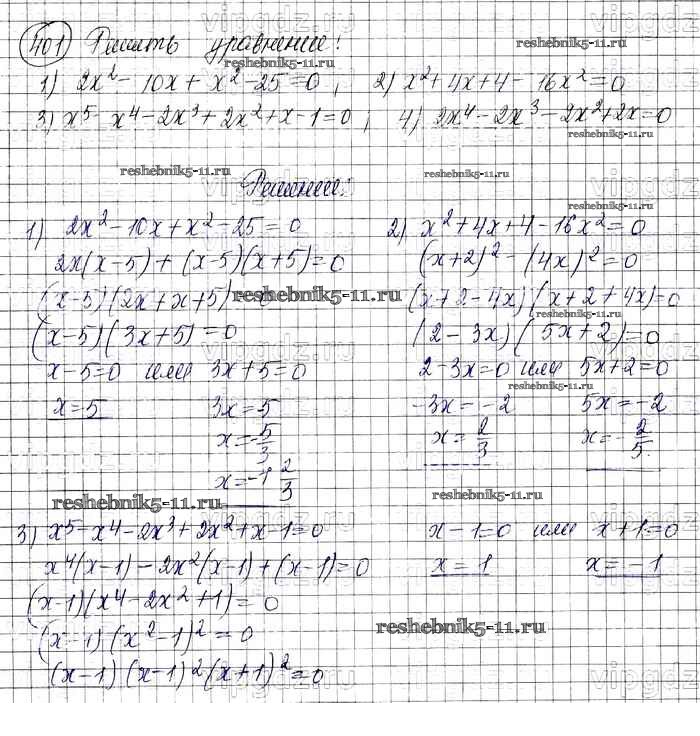 401 Решить уравнение!
1) 2x² - 10x + x² - 25 = 0; 2) x² + 4x + 4 - 16x² = 0
3) x⁵ - x⁴ - 2x³ + 2x² + x - 1 = 0; 4) 2x⁴ - 2x³ - 2x² + 2x = 0
Решение:
1) 2x² - 10x + x² - 25 = 0
2x(x-5) + (x-5)(x+5) = 0
(x-5)(2x+x+5)
(x-5)(3x+5) = 0
x-5=0 или 3x+5=0
x=5 3x=-5
x=-5/3
x=-1 2/3
2) x² + 4x + 4 - 16x² = 0
(x+2)² - (4x)² = 0
(x+2-4x)(x+2+4x)=0
(2-3x)(5x+2)=0
2-3x=0 или 5x+2=0
-3x=-2 5x=-2
x=2/3 x=-2/5
3) x⁵ - x⁴ - 2x³ + 2x² + x - 1 = 0
x⁴(x-1) - 2x²(x-1) + (x-1) = 0
(x-1)(x⁴-2x²+1) = 0
(x-1)(x²-1)² = 0
(x-1)(x-1)²(x+1)² = 0
x-1=0 или x+1=0
x=1 x=-1
reshebnik5-11.ru
vipgdz.ru